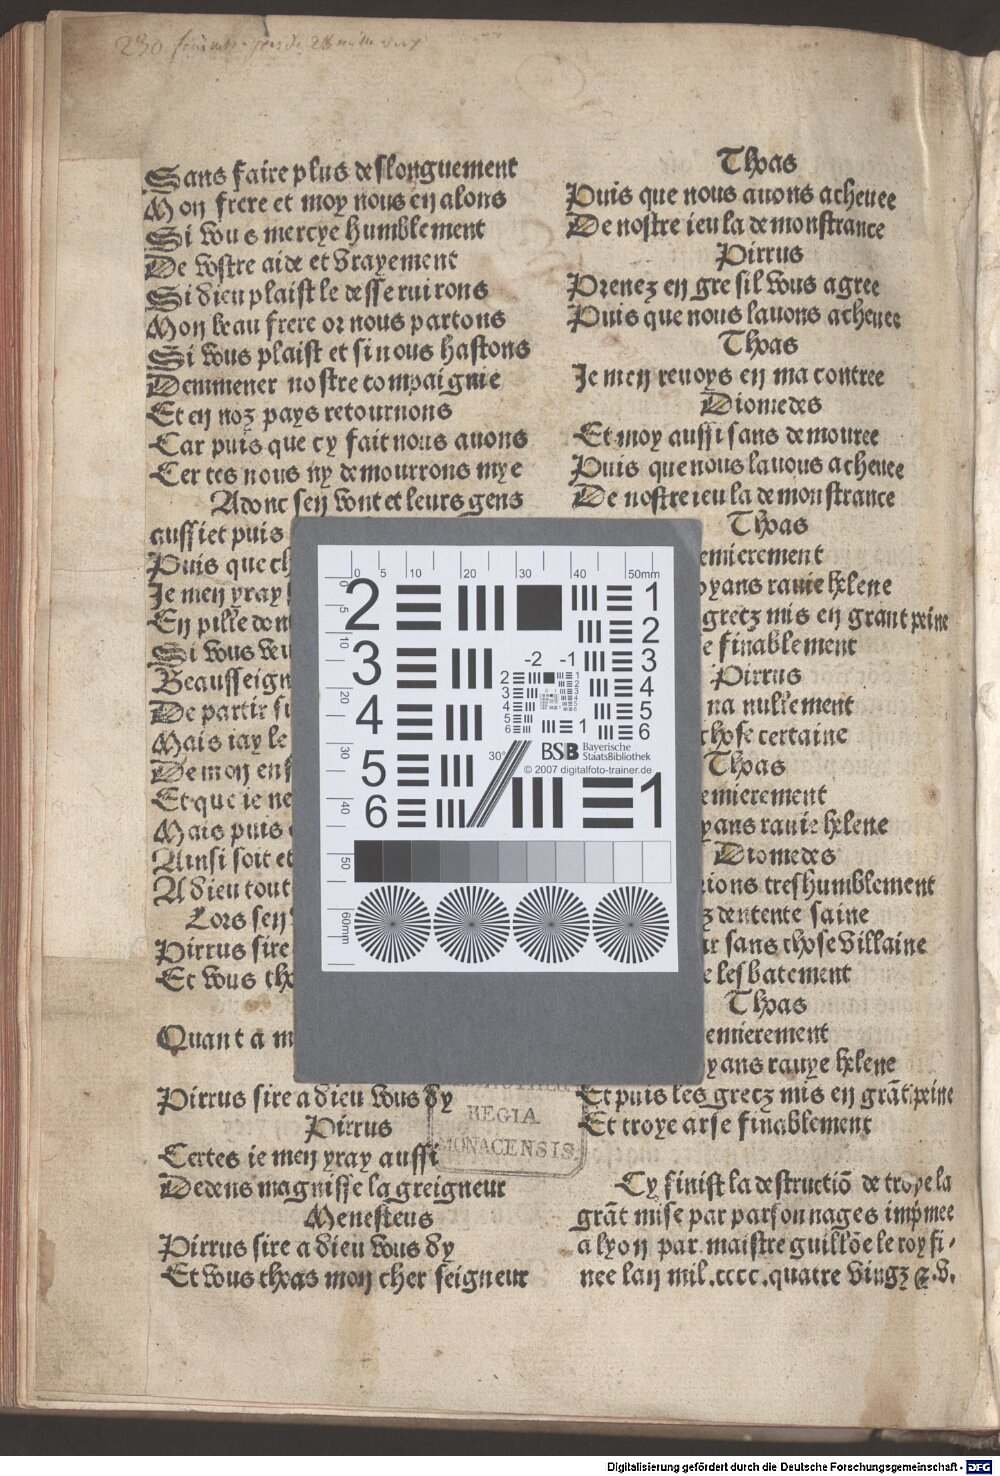 Sans faire plus deslonguement
Mon frere et moy nous en alons
Si vous mercye humblement
De vostre aide et vrayement
Si dieu plaist le desseruirons
Mon beau frere or nous partons
Si vous plaist et si nous hastons
Demmener nostre compaignie
Et en noz pays retournons
Car puis que cy fait nous auons
Certes nous ny demourrons mye
Adonc sen vont et leurs gens
aussi et puis
Puis que ch
Je men yray
En pille don
Si vous veu
Beausseign
De partir si
Mais iay le
De mon ens
Et que ie ne
Mais puis
Ainsi soit et
A dieu tout
Lors sen
Pirrus sire
Et vous tho
Quant a m
Pirrus sire a dieu vous dy
Pirrus
Certes ie men yray aussi
Dedens magnisse la greigneur
Menesteus
Pirrus sire a dieu vous dy
Et vous thoas mon cher seigneur
Thoas
Puis que nous auons acheuee
De nostre ieu la demonstrance
Pirrus
Prenez en gre sil vous agree
Puis que nous lauons acheuee
Thoas
Je men reuoys en ma contree
Diomedes
Et moy aussi sans demouree
Puis que nous lauous acheuee
De nostre ieu la demonstrance
Thoas
emierement
oyans rauie helene
gretz mis en grant peine
e finablement
Pirrus
na nullement
chose certaine
Thoas
emierement
yans rauie helene
Diomedes
rions treshumblement
z dentente saine
ur sans chose villaine
e lesbatement
Thoas
emierement
yans rauye helene
Et puis les gretz mis en grāt peine
Et troye arse finablement
Cy finist la destructiō de troye la
grāt mise par parsonnages impmee
a lyon par maistre guillōe le roy fi-
nee lan mil.cccc.quatre vingz & .v.
REGIA
MONACENSIS
0 5 10 20 30 40 50mm
0 5 10 20 30 40 50 60mm
2 1
2
3 3
4 4
5 5
6 6
1
-2 -1
30°
BSB Bayerische
StaatsBibliothek
© 2007 digitalfoto-trainer.de
Digitalisierung gefördert durch die Deutsche Forschungsgemeinschaft - DFG